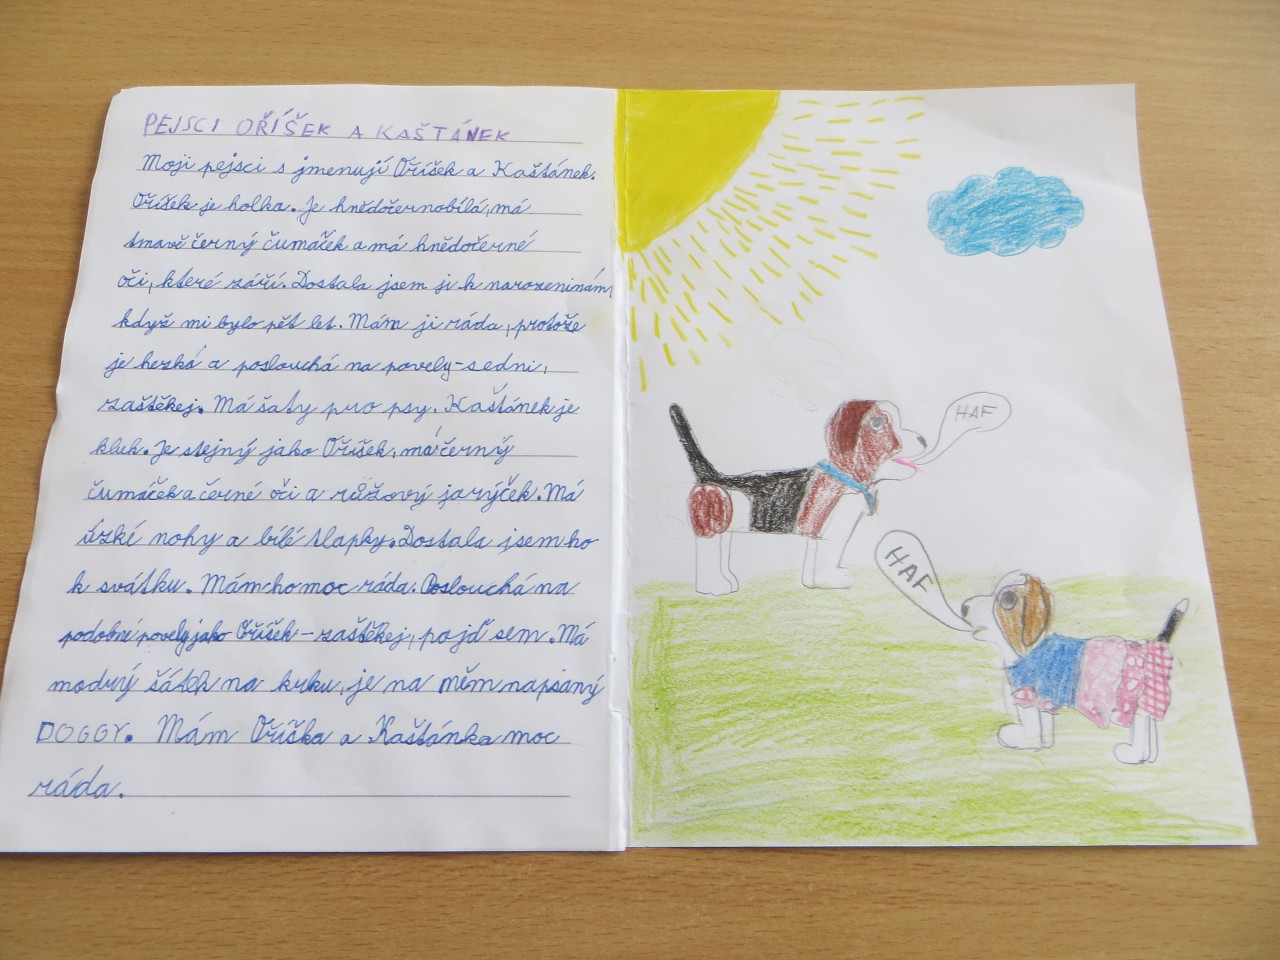 PEJSCI OŘÍŠEK A KAŠTÁNEK
Moji pejsci s jmenují Oříšek a Kaštánek.
Oříšek je holka. Je hnědočernobílá, má
tmavě černý čumáček a má hnědočerné
oči, které září. Dostala jsem ji k narozeninám,
když mi bylo pět let. Mám ji ráda, protože
je hezká a poslouchá na povely - sedni,
zaštěkej. Má šaty pro psy. Kaštánek je
kluk. Je stejný jako Oříšek, má černý
čumáček a černé oči a růžový jazýček. Má
úzké nohy a bílé tlapky. Dostala jsem ho
k svátku. Mám ho moc ráda. Poslouchá na
podobné povely jako Oříšek - zaštěkej, pojď sem. Má
modrý šátek na krku, je na něm napsaný
DOGGY. Mám Oříška a Kaštánka moc
ráda.
HAF
HAF